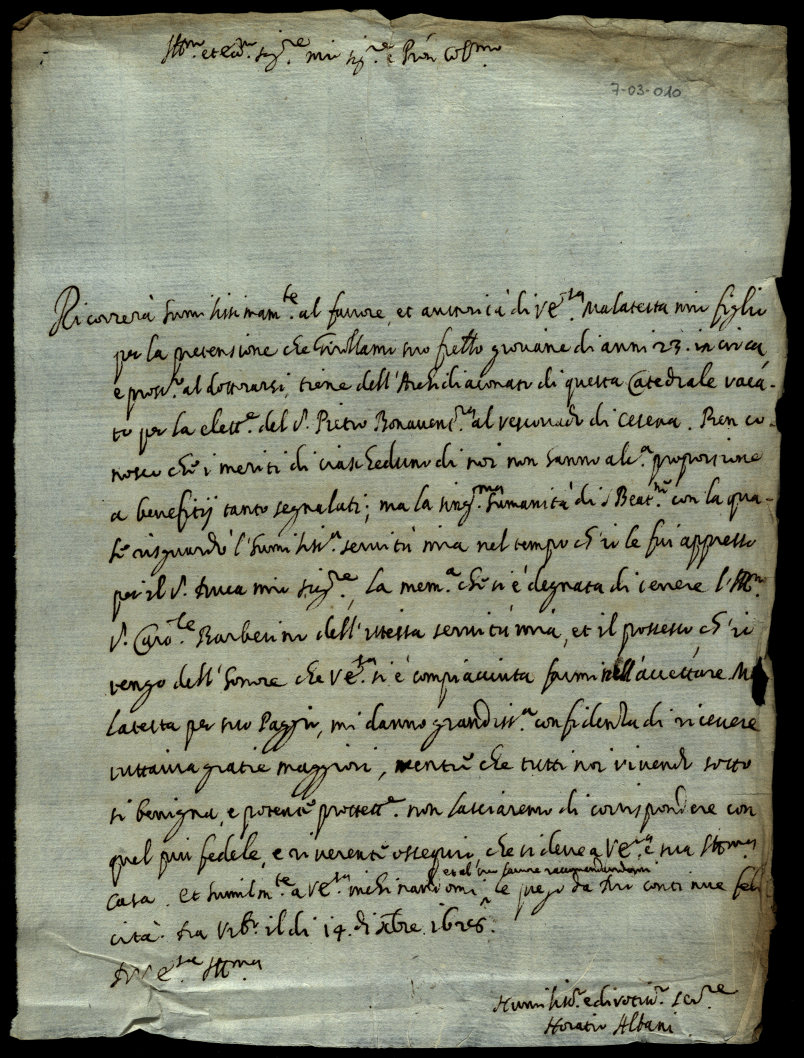 Ill.mo et ecc.mo sig.re mio sig.re e Pron Col.mo
7-03-010
Ricorrerà humilissimam.te al favore, et autorità di V.E. Malatesta mio figlio
per la pretensione che Girollamo suo frello giovane di anni 23. in circa,
e pross.o al dottorarsi, tiene dell'Archidiaconato di questa Catedrale vacā-
to per la elett.e del S. Pietro Bonavent.a al vescovado di Cesena. Ben co-
nosco che i meriti di ciascheduno di noi non hanno alc.a proporzione
a benefitij tanto segnalati; ma la sing.ma humanità di S. Beat.ne con la qua-
le risguardò l'humiliss.a servitù mia nel tempo ch'io le fui appresso
per il S. Duca mio Sig.re, la mem.a che si è degnata di tenere l'Ill.mo
S. Car.le Barberino dell'istessa servitù mia, et il possesso ch'io
tengo dell'honore che V.E. si è compiaciuta farmi nell'accettare Ma
latesta per suo Paggio, mi danno grandiss.a confidenza di ricevere
tuttavia gratie maggiori, mentre che tutti noi vivendo sotto
sì benigna, e potente protett.e non lasciaremo di corrispondere con
quel più fedele, e riverente ossequio che si deve a V.E. e sua Ill.ma
et al suo favore racomandandomi
casa. Et humilm.te a V.E. inchinandomi le prego da Dio continue feli
cità. Da Urb.o il dì 14. di Xbre. 1628.
Di V.E. Ill.ma
Humiliss.o e divotiss.o ser.re
Horatio Albani